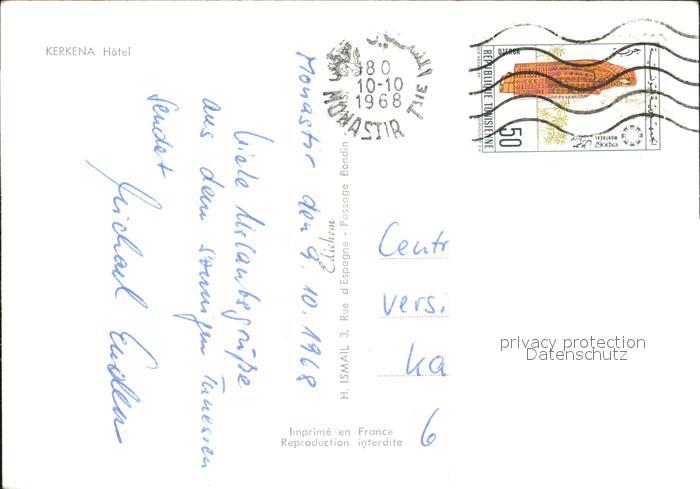 KERKENA Hôtel
Monastir den 9.10.1968
Viele Urlaubsgrüße
aus dem sonnigen Tunesien
sendet
Michael
H. ISMAIL 3, Rue d'Espagne - Passage Bondin
Edichem
Imprimé en France
Reproduction interdite
180
10-10
1968
MONASTIR
المنستير
REPUBLIQUE TUNISIENNE
50
DJERBA
جربة
expo67
MONTREAL
Centr
versi
Ka
6
privacy protection
Datenschutz